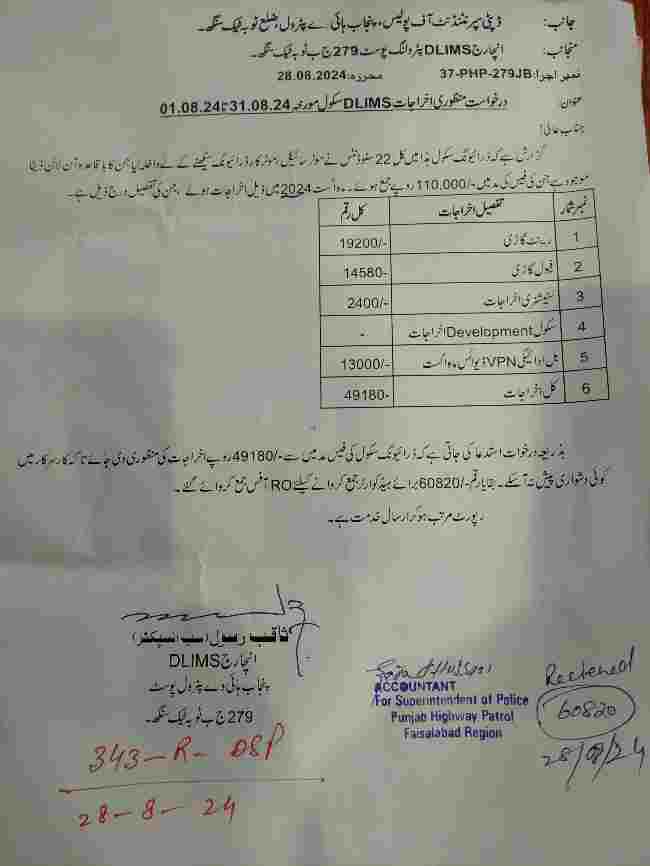 جانب: ڈپٹی سپرنٹنڈنٹ آف پولیس، پنجاب ہائی وے پٹرول، ضلع ٹوبہ ٹیک سنگھ۔
منجانب: انچارج DLIMS پٹرولنگ پوسٹ 279 ج ب ٹوبہ ٹیک سنگھ۔
نمبر اجرا: 37-PHP-279JB محررہ: 28.08.2024
عنوان درخواست منظوری اخراجات DLIMS سکول مورخہ 01.08.24 تا 31.08.24
جناب عالی!
گزارش ہے کہ ڈرائیونگ سکول ہذا میں کل 22 سٹوڈنٹس نے موٹر سائیکل / موٹر کار ڈرائیونگ سیکھنے کے لے داخلہ لیا جن کا باقاعدہ آن لائن ڈیٹا
موجود ہے جن کی فیس کی مد میں -/110,000 روپے جمع ہوئے۔ ماہ اگست 2024 میں ذیل اخراجات ہوئے، جن کی تفصیل درج ذیل ہے۔
نمبر شمار تفصیل اخراجات کل رقم
1 رینٹ گاڑی 19200/-
2 فیول گاڑی 14580/-
3 سٹیشنری اخراجات 2400/-
4 سکول Development اخراجات -
5 بل ادائیگی VPN ڈیوائس ماہ اگست 13000/-
6 کل اخراجات 49180/-
بذریعہ درخواست استدعا کی جاتی ہے کہ ڈرائیونگ سکول کی فیس مد میں سے -/49180 روپے اخراجات کی منظوری دی جائے تاکہ کار سرکار میں
کوئی دشواری پیش نہ آسکے۔ بقایا رقم -/60820 برائے ہیڈ کوارٹر جمع کروانے کیلئے RO آفس جمع کروائے گئے۔
رپورٹ مرتب ہو کر ارسال خدمت ہے۔
ثاقب رسول (سب انسپکٹر)
انچارج DLIMS
پنجاب ہائی وے پٹرول پوسٹ
279 ج ب ٹوبہ ٹیک سنگھ۔
343-R-DSP
28-8-24
ACCOUNTANT
For Superintendent of Police
Punjab Highway Patrol
Faisalabad Region
60820
28/08/24